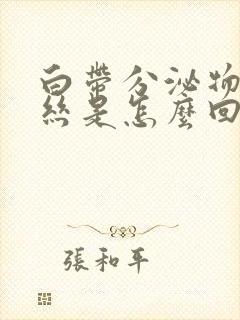 白帶分泌物
絲是怎麼回
張和平